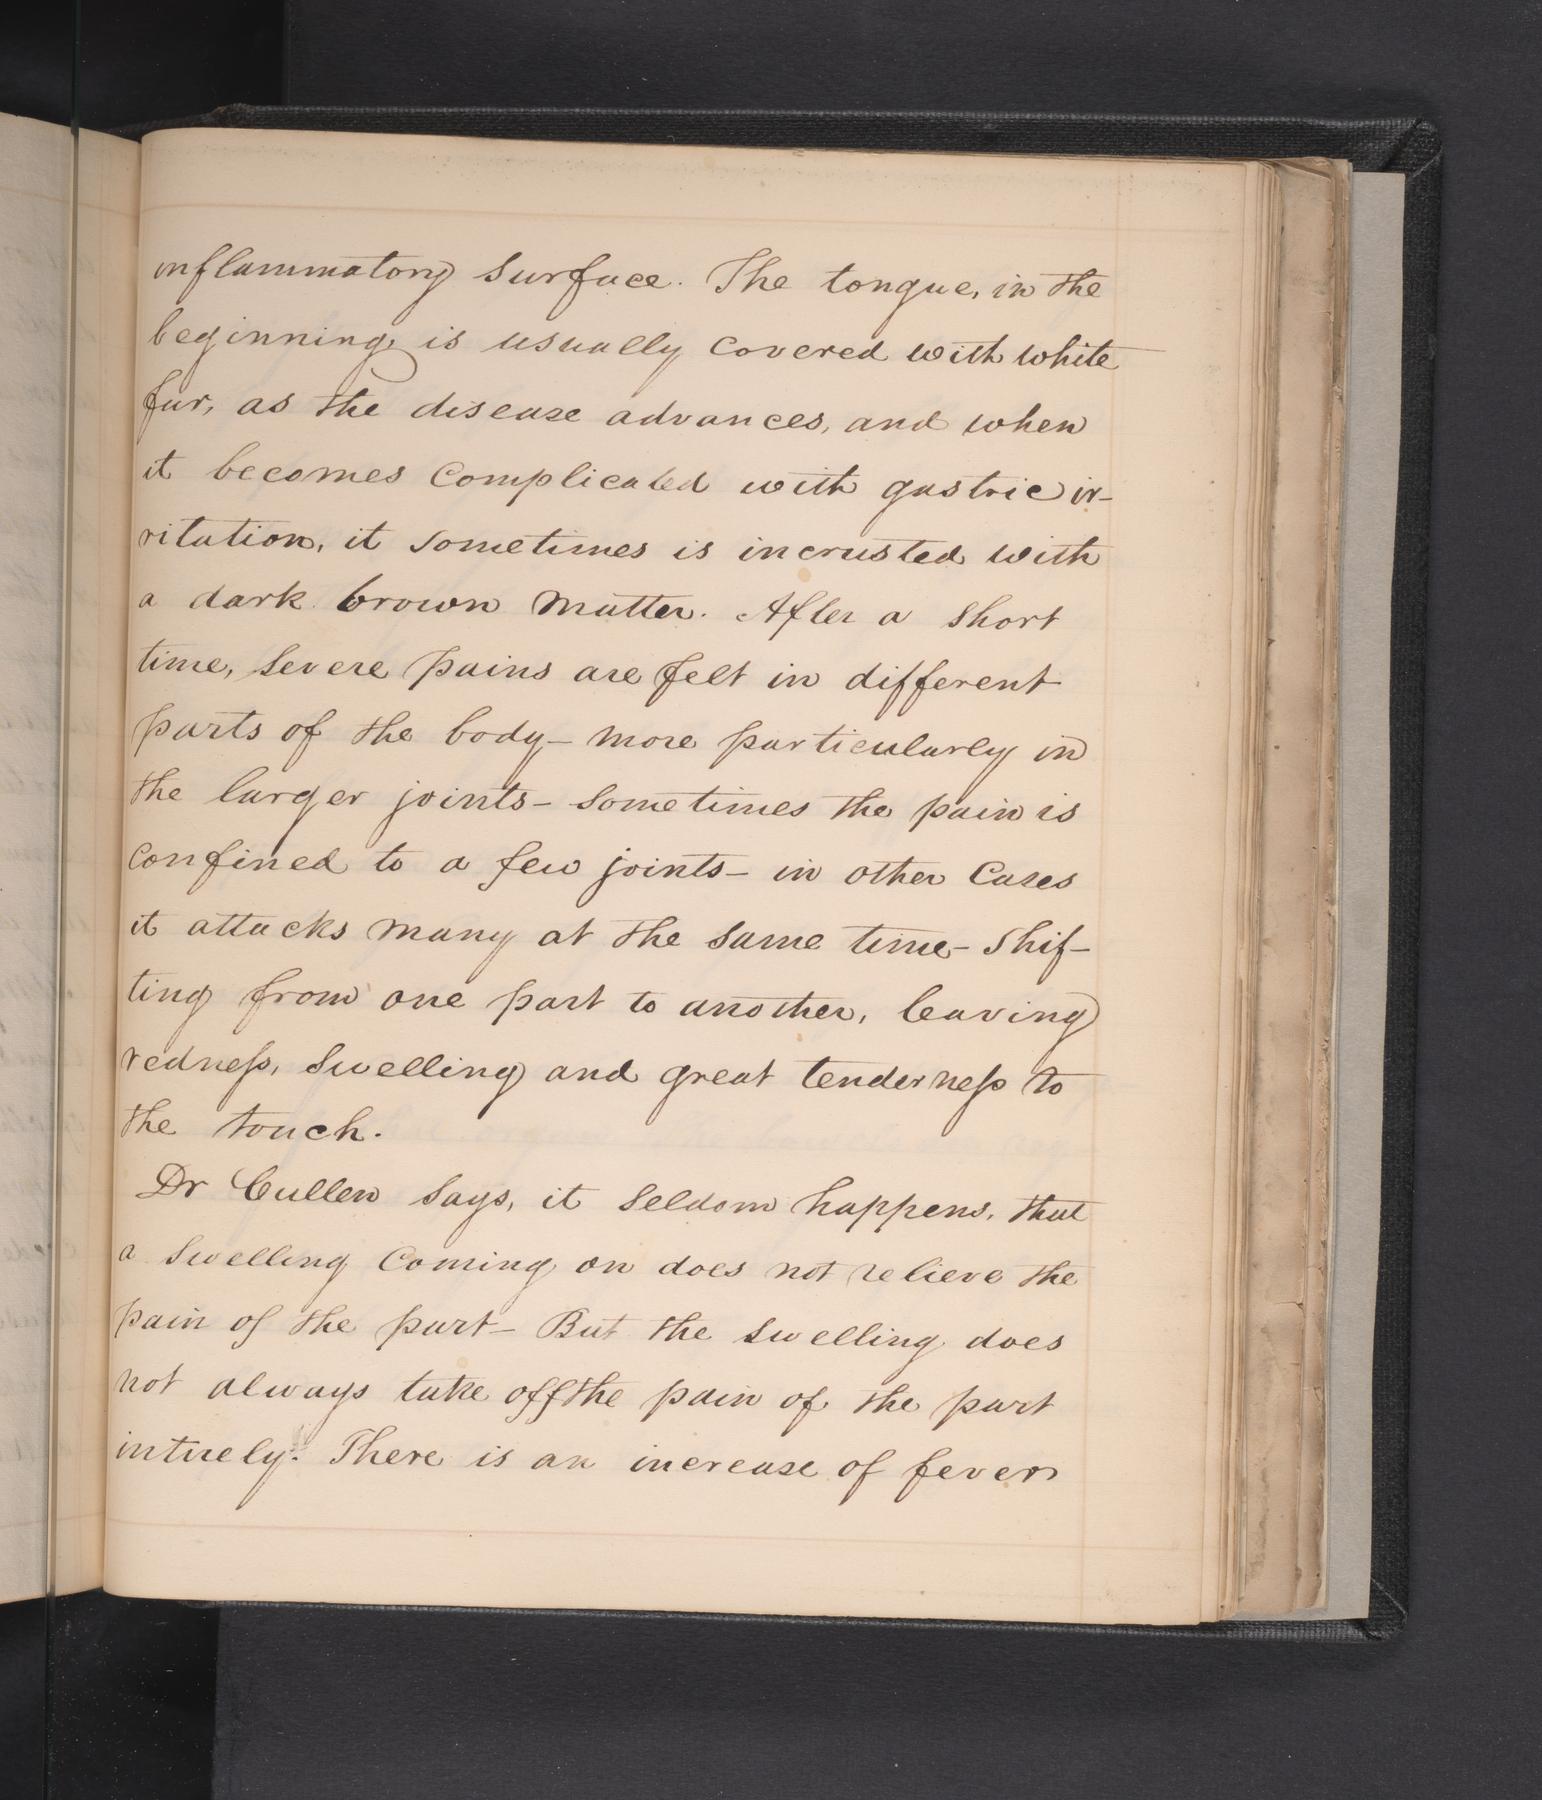 inflammatory surface. The tongue, in the
beginning is usually covered with white
fur, as the disease advances, and when
it becomes complicated with gastric ir-
ritation, it sometimes is incrusted with
a dark brown matter. After a short
time, severe pains are felt in different
parts of the body - more particularly in
the larger joints - sometimes the pain is
confined to a few joints - in other cases
it attacks many at the same time - shif-
ting from one part to another, leaving
redness, swelling and great tenderness to
the touch.
Dr Cullen says, it seldom happens, that
a swelling coming on does not relieve the
pain of the part - But the swelling does
not always take off the pain of the part
intirely. There is an increase of fever